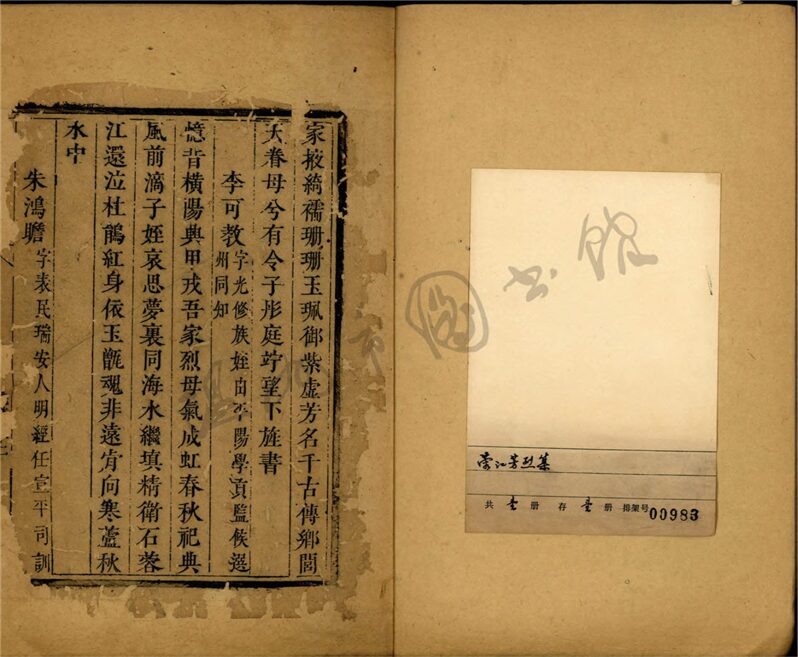 家掖綺襦珊珊玉珮御紫虛芳名千古傳鄉閭
大眷母兮有令子彤庭竚望下旌書
李可教字光修族姪由平陽學貢監候選
州同知
憶昔橫陽與甲戎吾家烈母氣成虹春秋祀典
風前滴子姪哀思夢裏同海水繼填精衛石蓉
江還泣杜鵑紅身依玉甑魂非遠肯向寒蘆秋
水中
朱鴻瞻字表民瑞安人明經任宣平司訓
圖書館
江芳烈集
共 壹 册 存 壹 册 排架号 00983